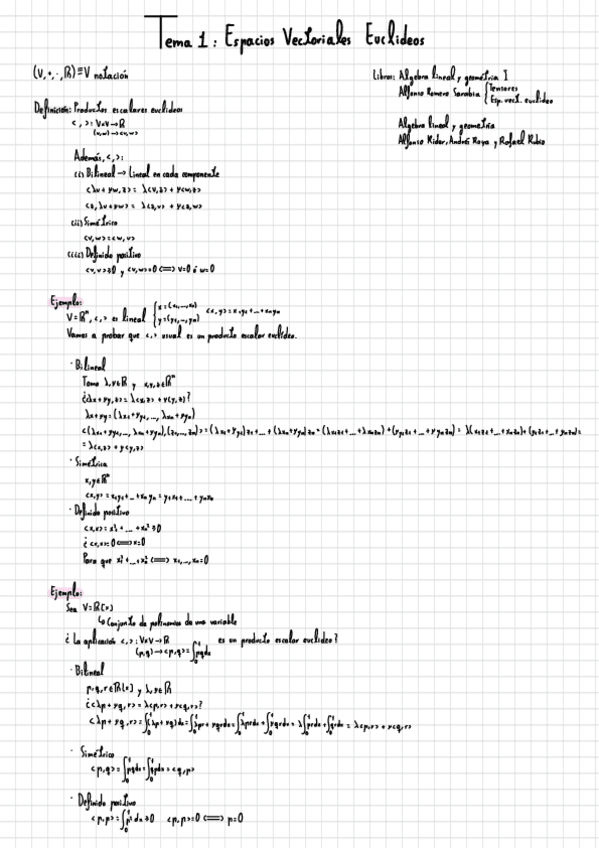 Tema 1: Espacios Vectoriales Euclideos
(V,+,·,ℝ) ≡ V notación
Libros: Algebra lineal y geometría I
Alfonso Romero Sarabia { Tensores
Esp. vect. euclideo
Algebra lineal y geometría
Definición: Productos escalares euclideos
<,>: V×V → ℝ
(v,w) → <v,w>
Además, <,>:
(i) Bilineal → Lineal en cada componente
<λv + γw, z> = λ<v,z> + γ<w,z>
<z, λv + γw> = λ<z,v> + γ<z,w>
(ii) Simétrico
<v,w> = <w,v>
(iii) Definido positivo
Ejemplo:
V = ℝⁿ, <,> es lineal { x = (x₁,...,xₙ) <x,y> = x₁y₁ + ... + xₙyₙ
y = (y₁,...,yₙ)
Vamos a probar que <,> usual es un producto escalar euclídeo.
· Bilineal
Tomo λ,γ∈ℝ y x,y,z∈ℝⁿ
¿<λx + γy, z> = λ<x,z> + γ<y,z>?
λx + γy = (λx₁ + γy₁, ..., λxₙ + γyₙ)
= λ<x,z> + γ<y,z>
· Simétrica
x,y∈ℝⁿ
<x,y> = x₁y₁ + ... + xₙyₙ = y₁x₁ + ... + yₙxₙ
· Definido positivo
<x,x> = x₁² + ... + xₙ² ≥ 0
¿<x,x> = 0 ⟺ x = 0
Para que x₁² + ... + xₙ² ⟺ x₁,...,xₙ = 0
Ejemplo:
Sea V = ℝ[x]
↳ Conjunto de polinomios de una variable
¿La aplicación <,>: V×V → ℝ es un producto escalar euclideo?
(p,q) → <p,q> = ∫₀¹ pq dx
· Bilineal
p,q,r∈ℝ[x] y λ,γ∈ℝ
¿<λp + γq, r> = λ<p,r> + γ<q,r>?
<λp + γq, r> = ∫₀¹ (λp + γq)r dx = ∫₀¹ λpr + γqr dx = ∫₀¹ λpr dx + ∫₀¹ γqr dx = λ∫₀¹ pr dx + γ∫₀¹ qr dx = λ<p,r> + γ<q,r>
· Simétrico
<p,q> = ∫₀¹ pq dx = ∫₀¹ qp dx = <q,p>
· Definido positivo
<p,p> = ∫₀¹ p² dx ≥ 0 <p,p> = 0 ⟺ p = 0